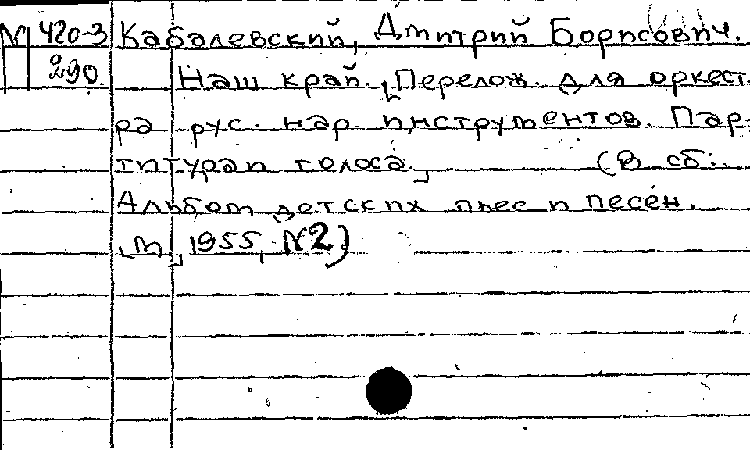 М 420-3 Кабалевский, Дмитрий Борисович.
290 Наш край. [Перелож. для оркест
ра рус. нар инструментов. Пар-
титура и голоса.] (В сб:
Альбом детских пьес и песен.
[М], 1955, №2)